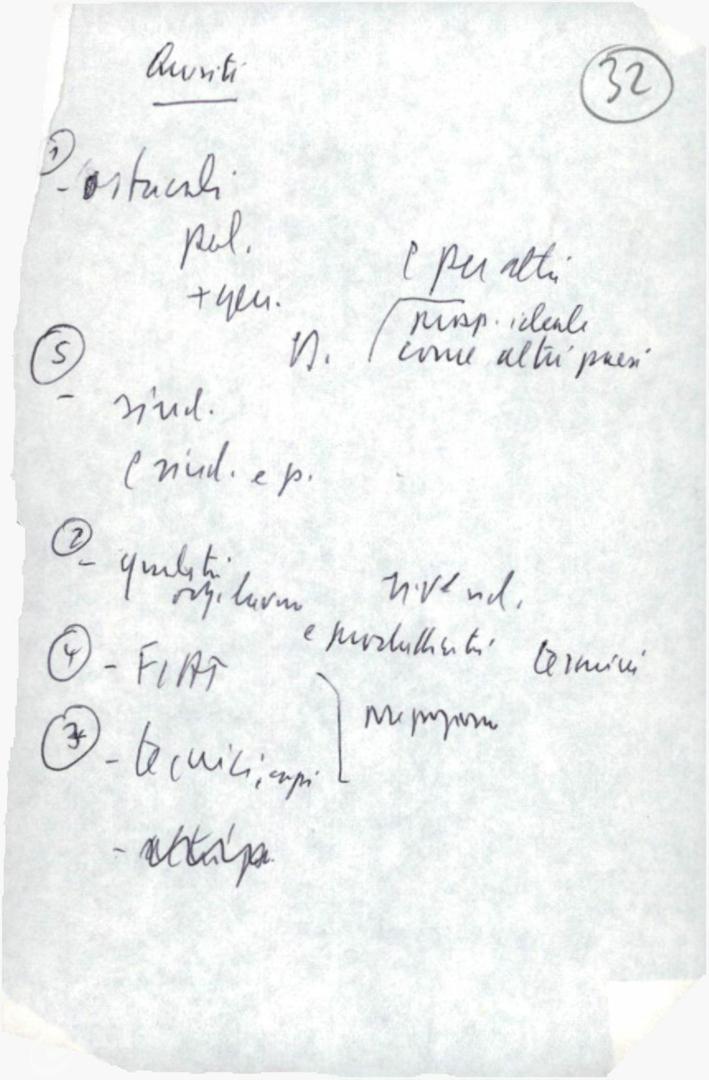 Quesiti
32
1
- ostacoli
pol.
+ gen.
e per altri
prosp. ideale
come altri paesi
5
- sind.
e sind. e p.
2
- qualità
org. lavoro
rivend.
e produttività
termini
4
- FIAT
3
- tecnici, capi